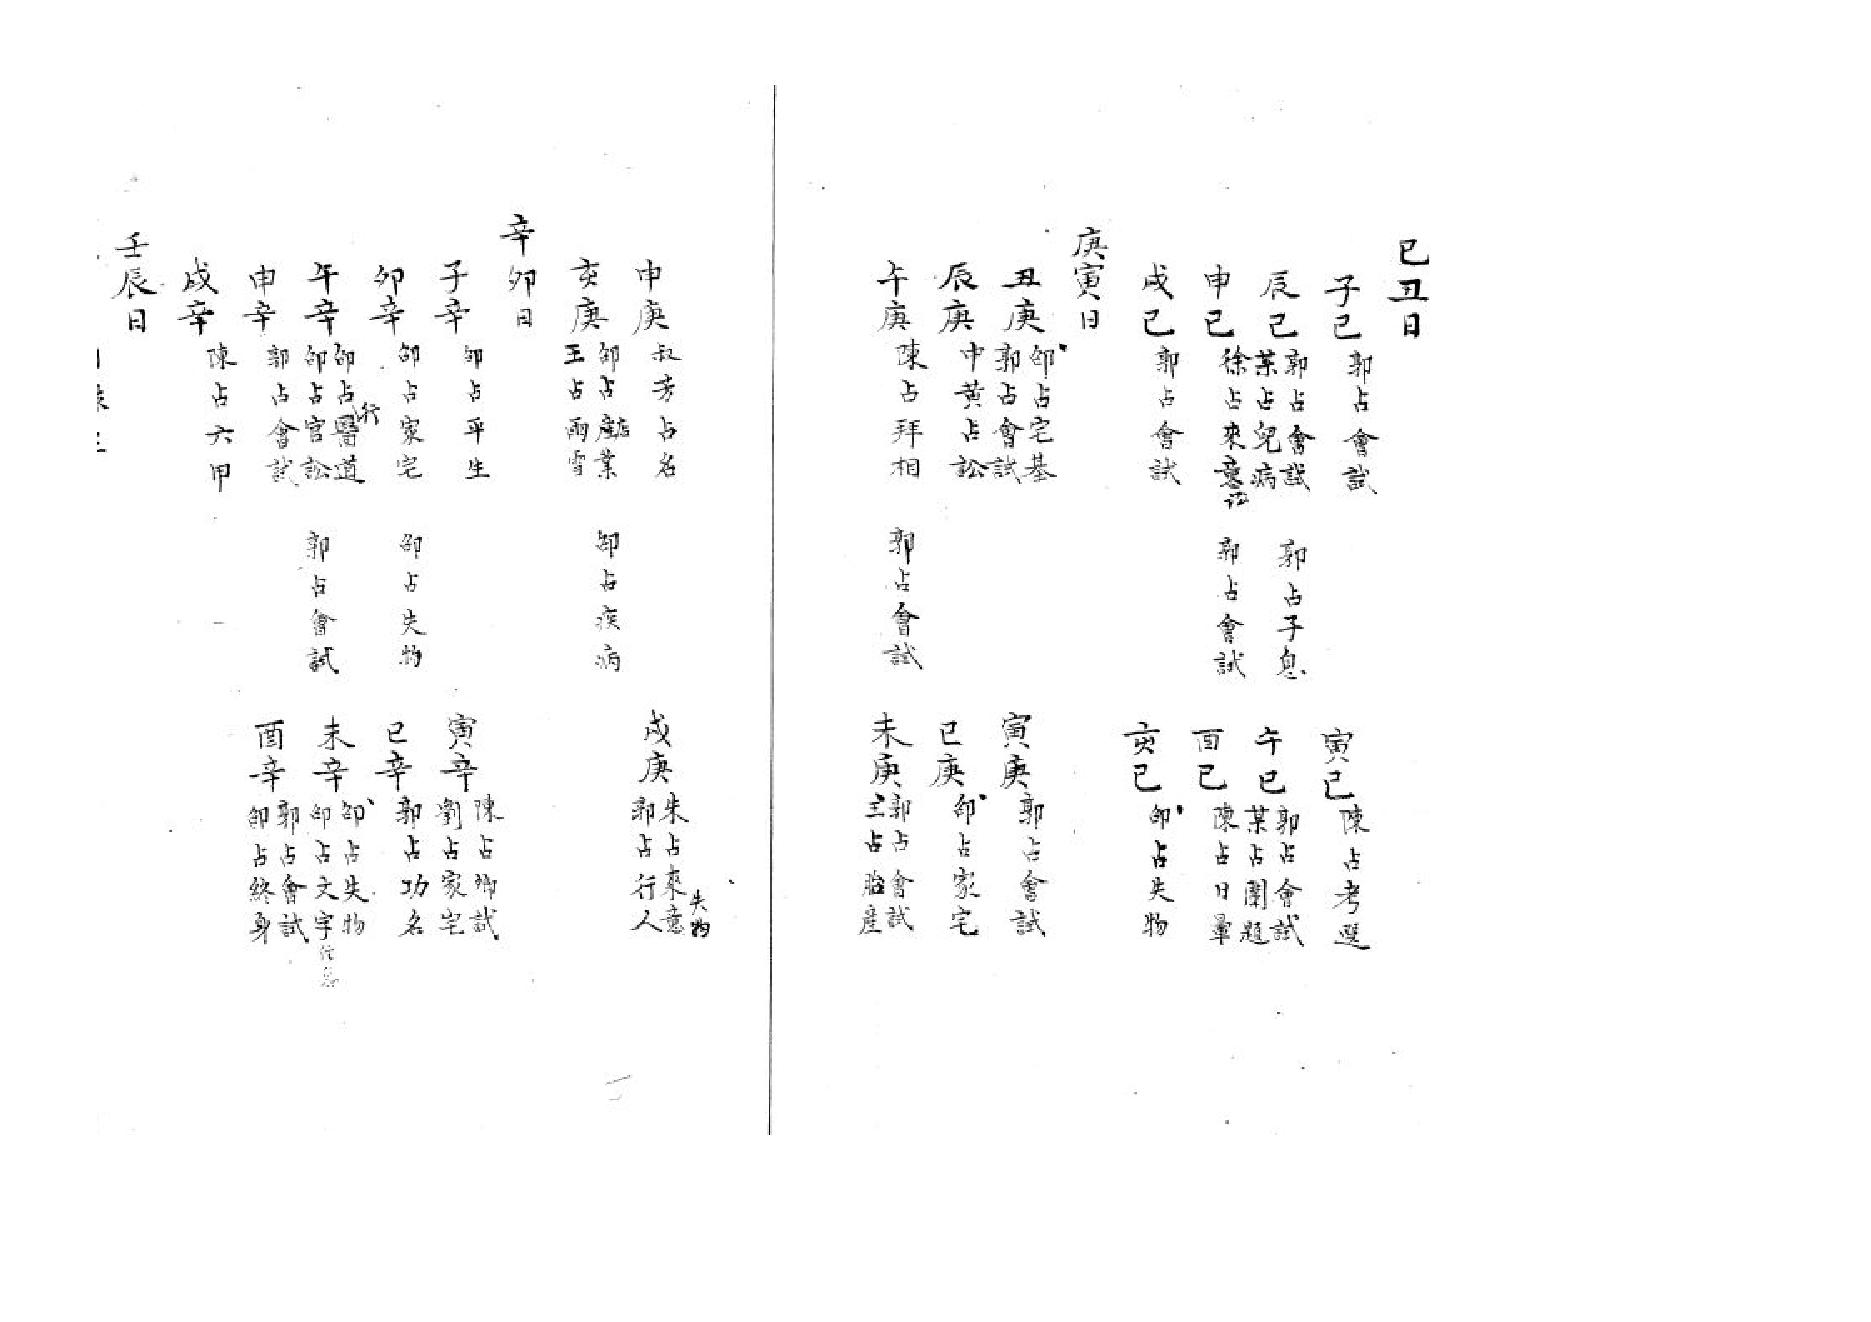 己丑日
子己 郭占會試
寅己 陳占考選
辰己 郭占會試 葉占兒病 郭占子息
午己 郭占會試 某占闈題
申己 徐占來意 郭占會試
酉己 陳占日暈
戌己 郭占會試
亥己 邵占失物
庚寅日
丑庚 邵占宅基 郭占會試
寅庚 郭占會試
辰庚 中黃占訟
巳庚 邵占家宅
午庚 陳占拜相 郭占會試
未庚 郭占會試 王占胎產
申庚 叔芳占名
戌庚 朱占來意失物 郭占行人
亥庚 邵占產業 王占雨雪 邵占疾病
辛卯日
子辛 邵占平生
寅辛 陳占鄉試 劉占家宅
卯辛 邵占家宅 邵占失物
巳辛 郭占功名
午辛 邵占醫道行 邵占官訟 郭占會試
未辛 邵占失物 邵占文字
申辛 郭占會試
酉辛 郭占會試 邵占終身
戌辛 陳占六甲
壬辰日